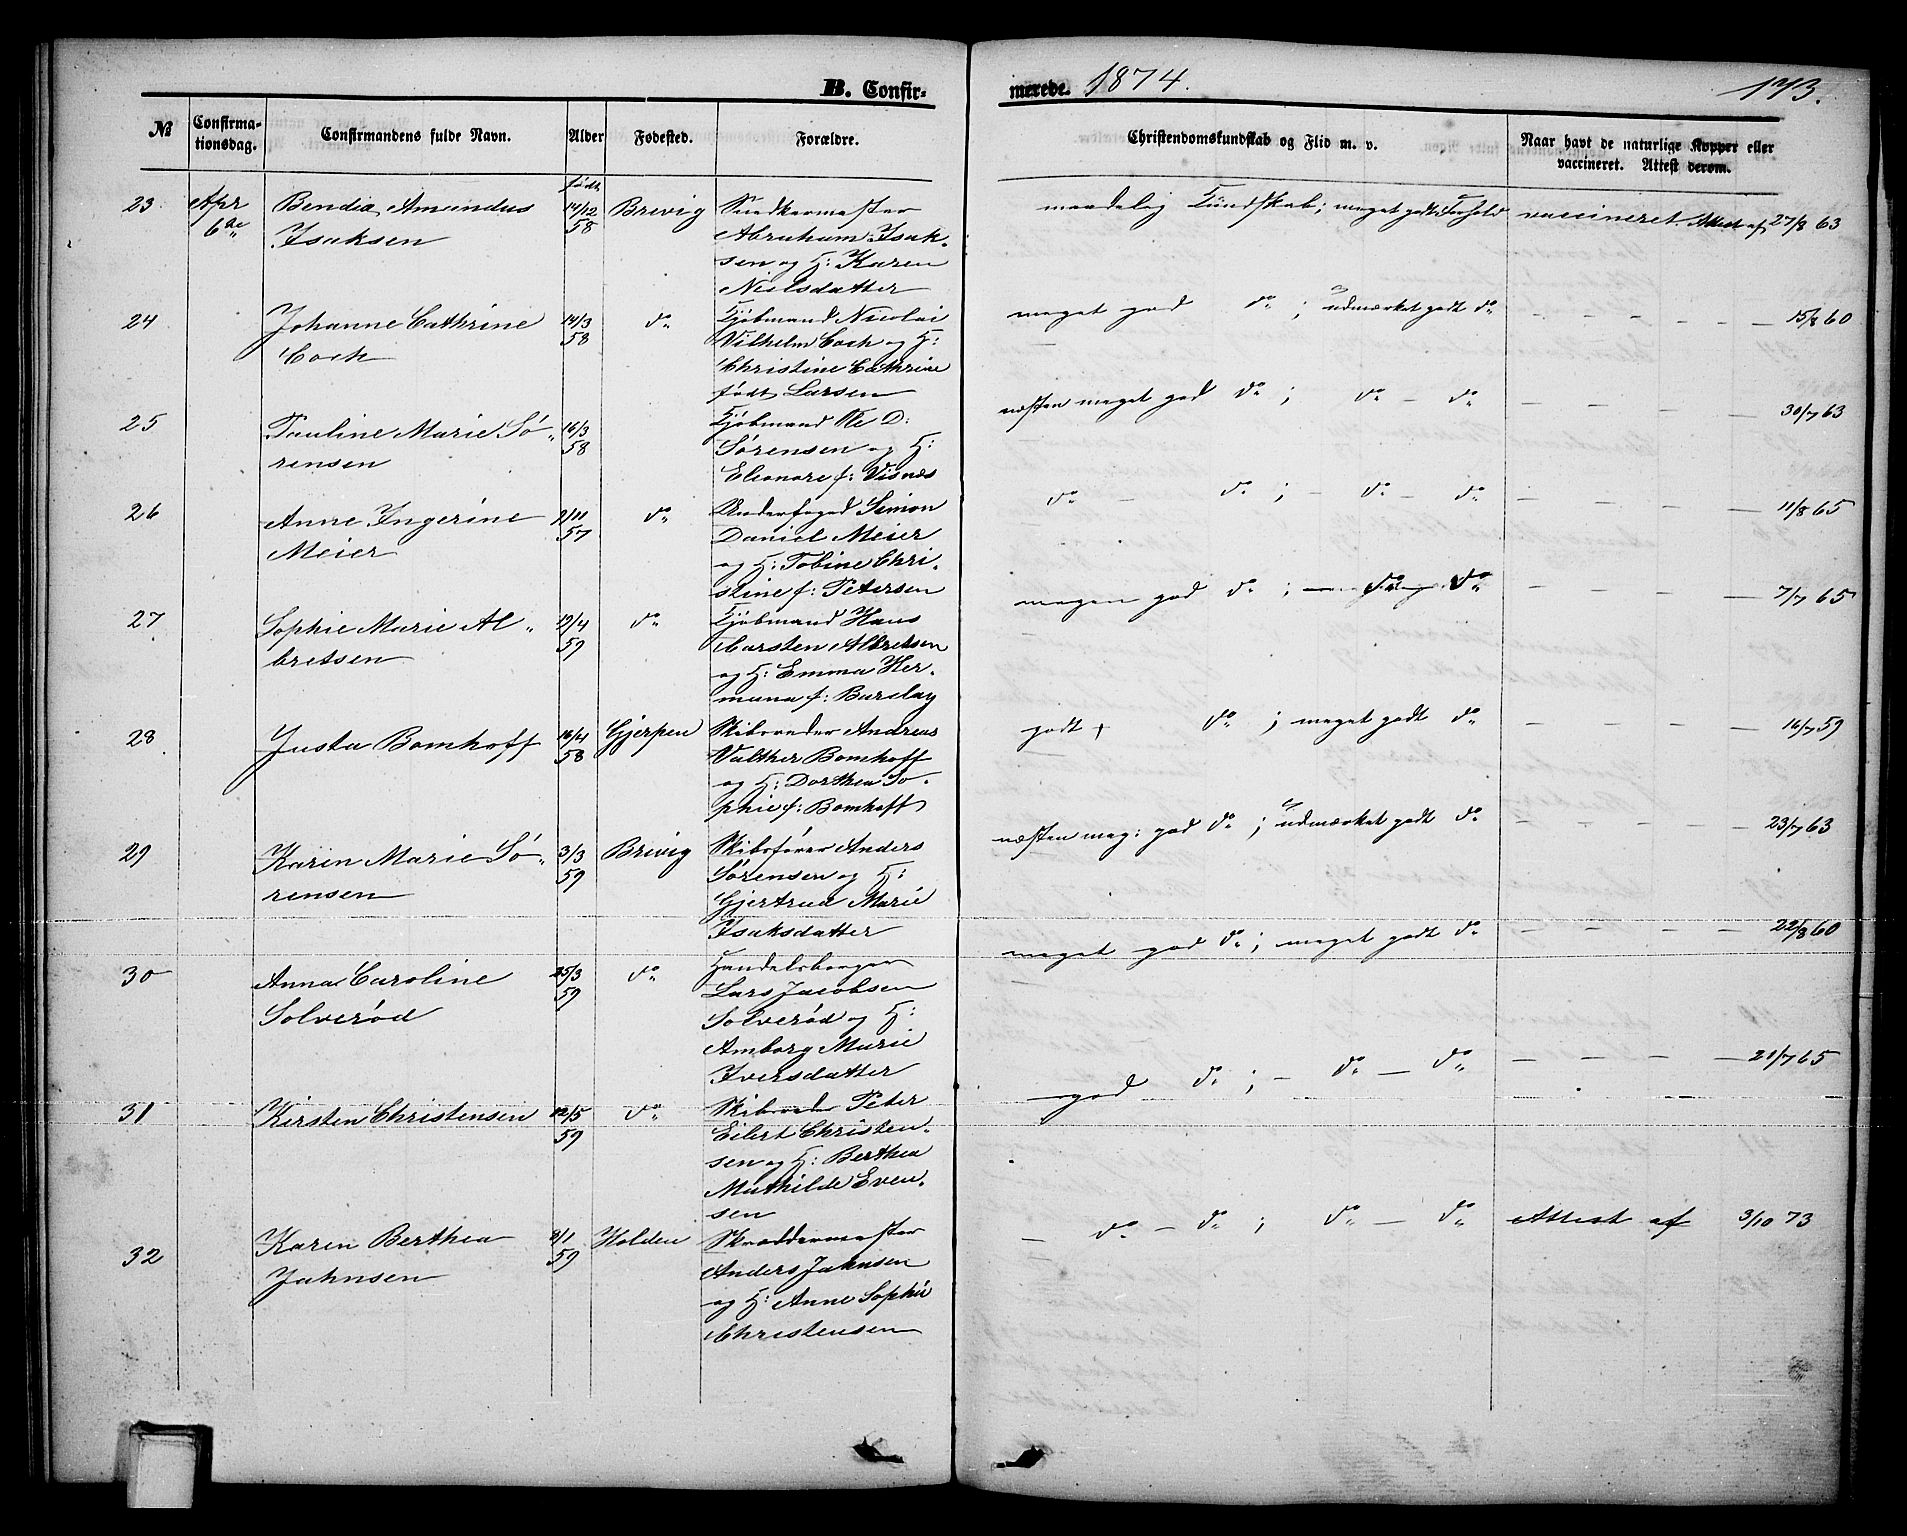 B. Confirmerede. 1874.
173.
№ Confirmationsdag. Confirmandens fulde Navn. Alder Fødested. Forældre. Christendomskundskab og Flid m. v. Naar havt de naturlige Kopper eller vaccineret. Attest derom.
født
23 Apr 14/12 Brevig Snedkermester
6te Isaksen 58 Abraham Isak-
sen og H: Karen
Nielsdatter
maadelig Kundskab; meget godt Forhold vaccineret. Attest af 27/8 63
24 Johanne Cathrine 14/3 do Kjøbmand Nicolai
Coch 58 Vilhelm Coch og H:
Christine Cathrine
født Larsen
meget god do ; udmærket godt do — — — — — 15/8 60
25 Pauline Marie Sö- 16/3 Kjøbmand
rensen 58 Sørensen og H:
Eleonore f: Visnæs
næsten meget god do ; do — do — — — — 30/7 63
26 Anne Ingerine 11 do Underfoged Simon
Meier 57 Daniel Meier
og H: Tobine Chri-
stine f: Petersen
do — do ; — do — do — — — — 11/8 65
27 Sophie Marie Al- 12/4 do Kjøbmand Hans
bretsen 59 Carsten Albretsen
og H: Emma Her-
mana f: Barclay
megen god do ; do do — — — — 7/7 65
28 Justa Bomhoff 16/4 Gjerpen Skibsreder Andreas
58 Valther Bomhoff
og H: Dorthea So-
phie f: Bomhoff
godt do ; meget godt do — — — — 16/7 59
29 Karen Marie Sö- 3/3 Brevig Skibsfører Anders
rensen 59 Sørensen og H:
Gjertrud Marie
Isaksdatter
næsten meg: god do ; udmærket godt do — — — — 23/7 63
30 Anna Caroline 25/3 do Handelsborger
Solverød 59 Lars Jacobsen
Solverød og H:
Amborg Marie
Iversdatter
meget god do ; meget godt do — — — — 22/8 60
31 Kirsten Christensen 12/5 do Skibsreder Peter
59 Eilert Christen-
sen og H: Berthea
Mathilde Even-
sen
god do ; — do — do — — — — 21/7 65
32 Karen Berthea /1 Holden Skræddermester
Jahnsen 59 Anders Jahnsen
og H: Anne Sophie
Christensen
— do — do ; do — do Attest af 3/10 73